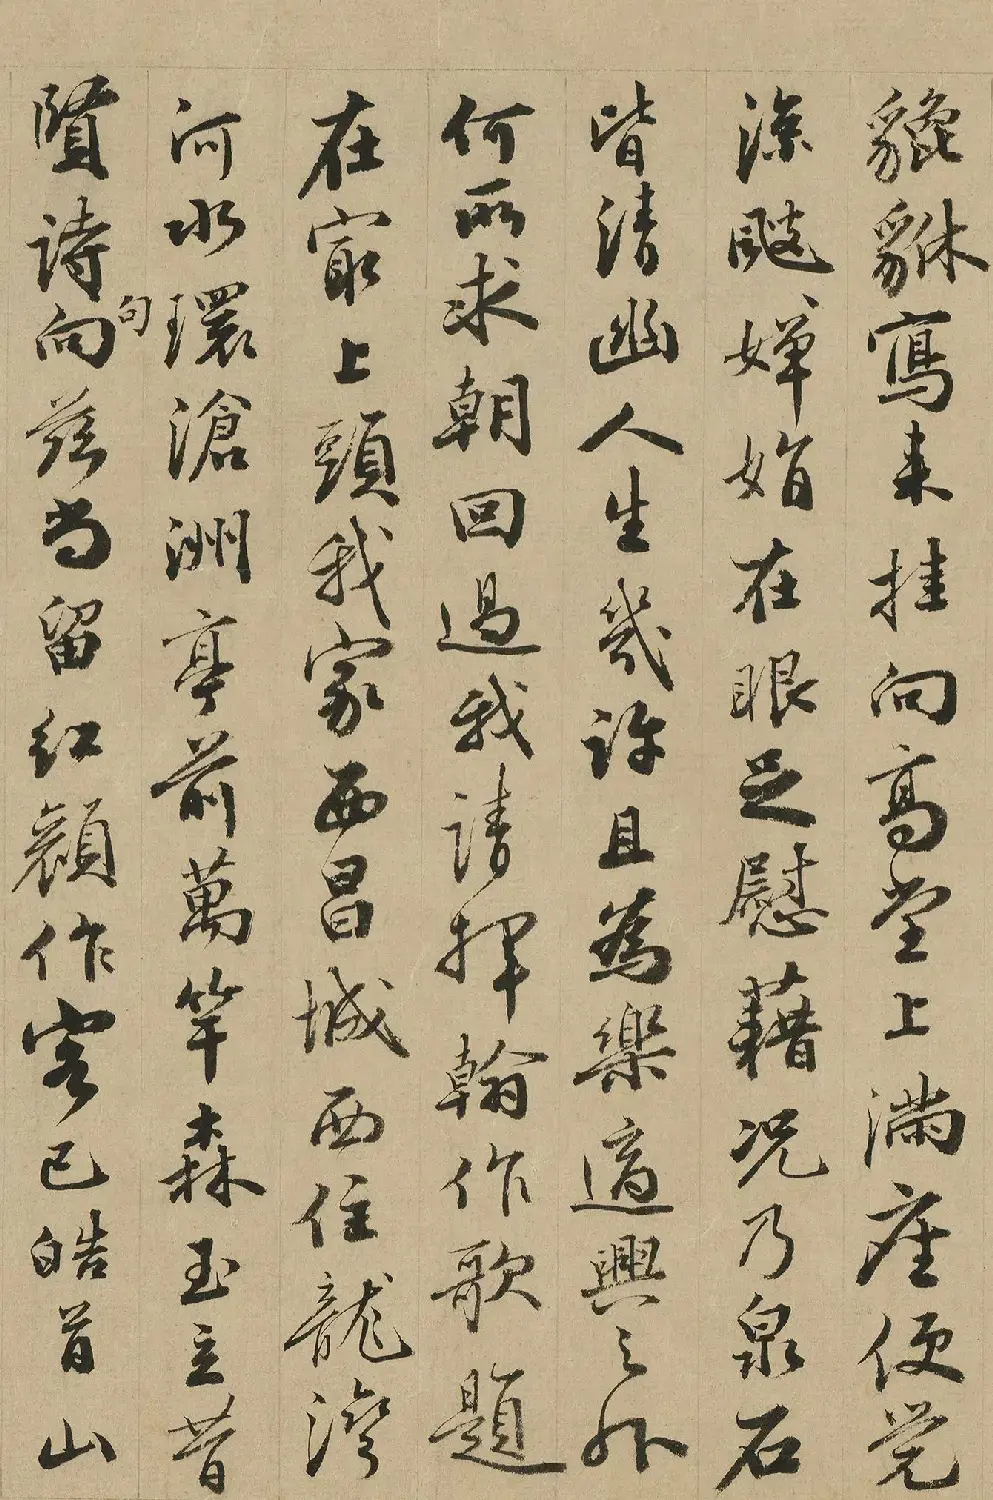 貔貅寫来挂向高堂上滿座便覺
涼飈嬋娟在眼足慰藉况乃泉石
皆清幽人生幾許且為樂適興之外
何所求朝回過我請揮翰作歌題
在最上頭我家西昌城西住龍灣
河水環滄洲亭前萬竿森玉立昔
賢詩向句茲當留紅顏作客已皓首山